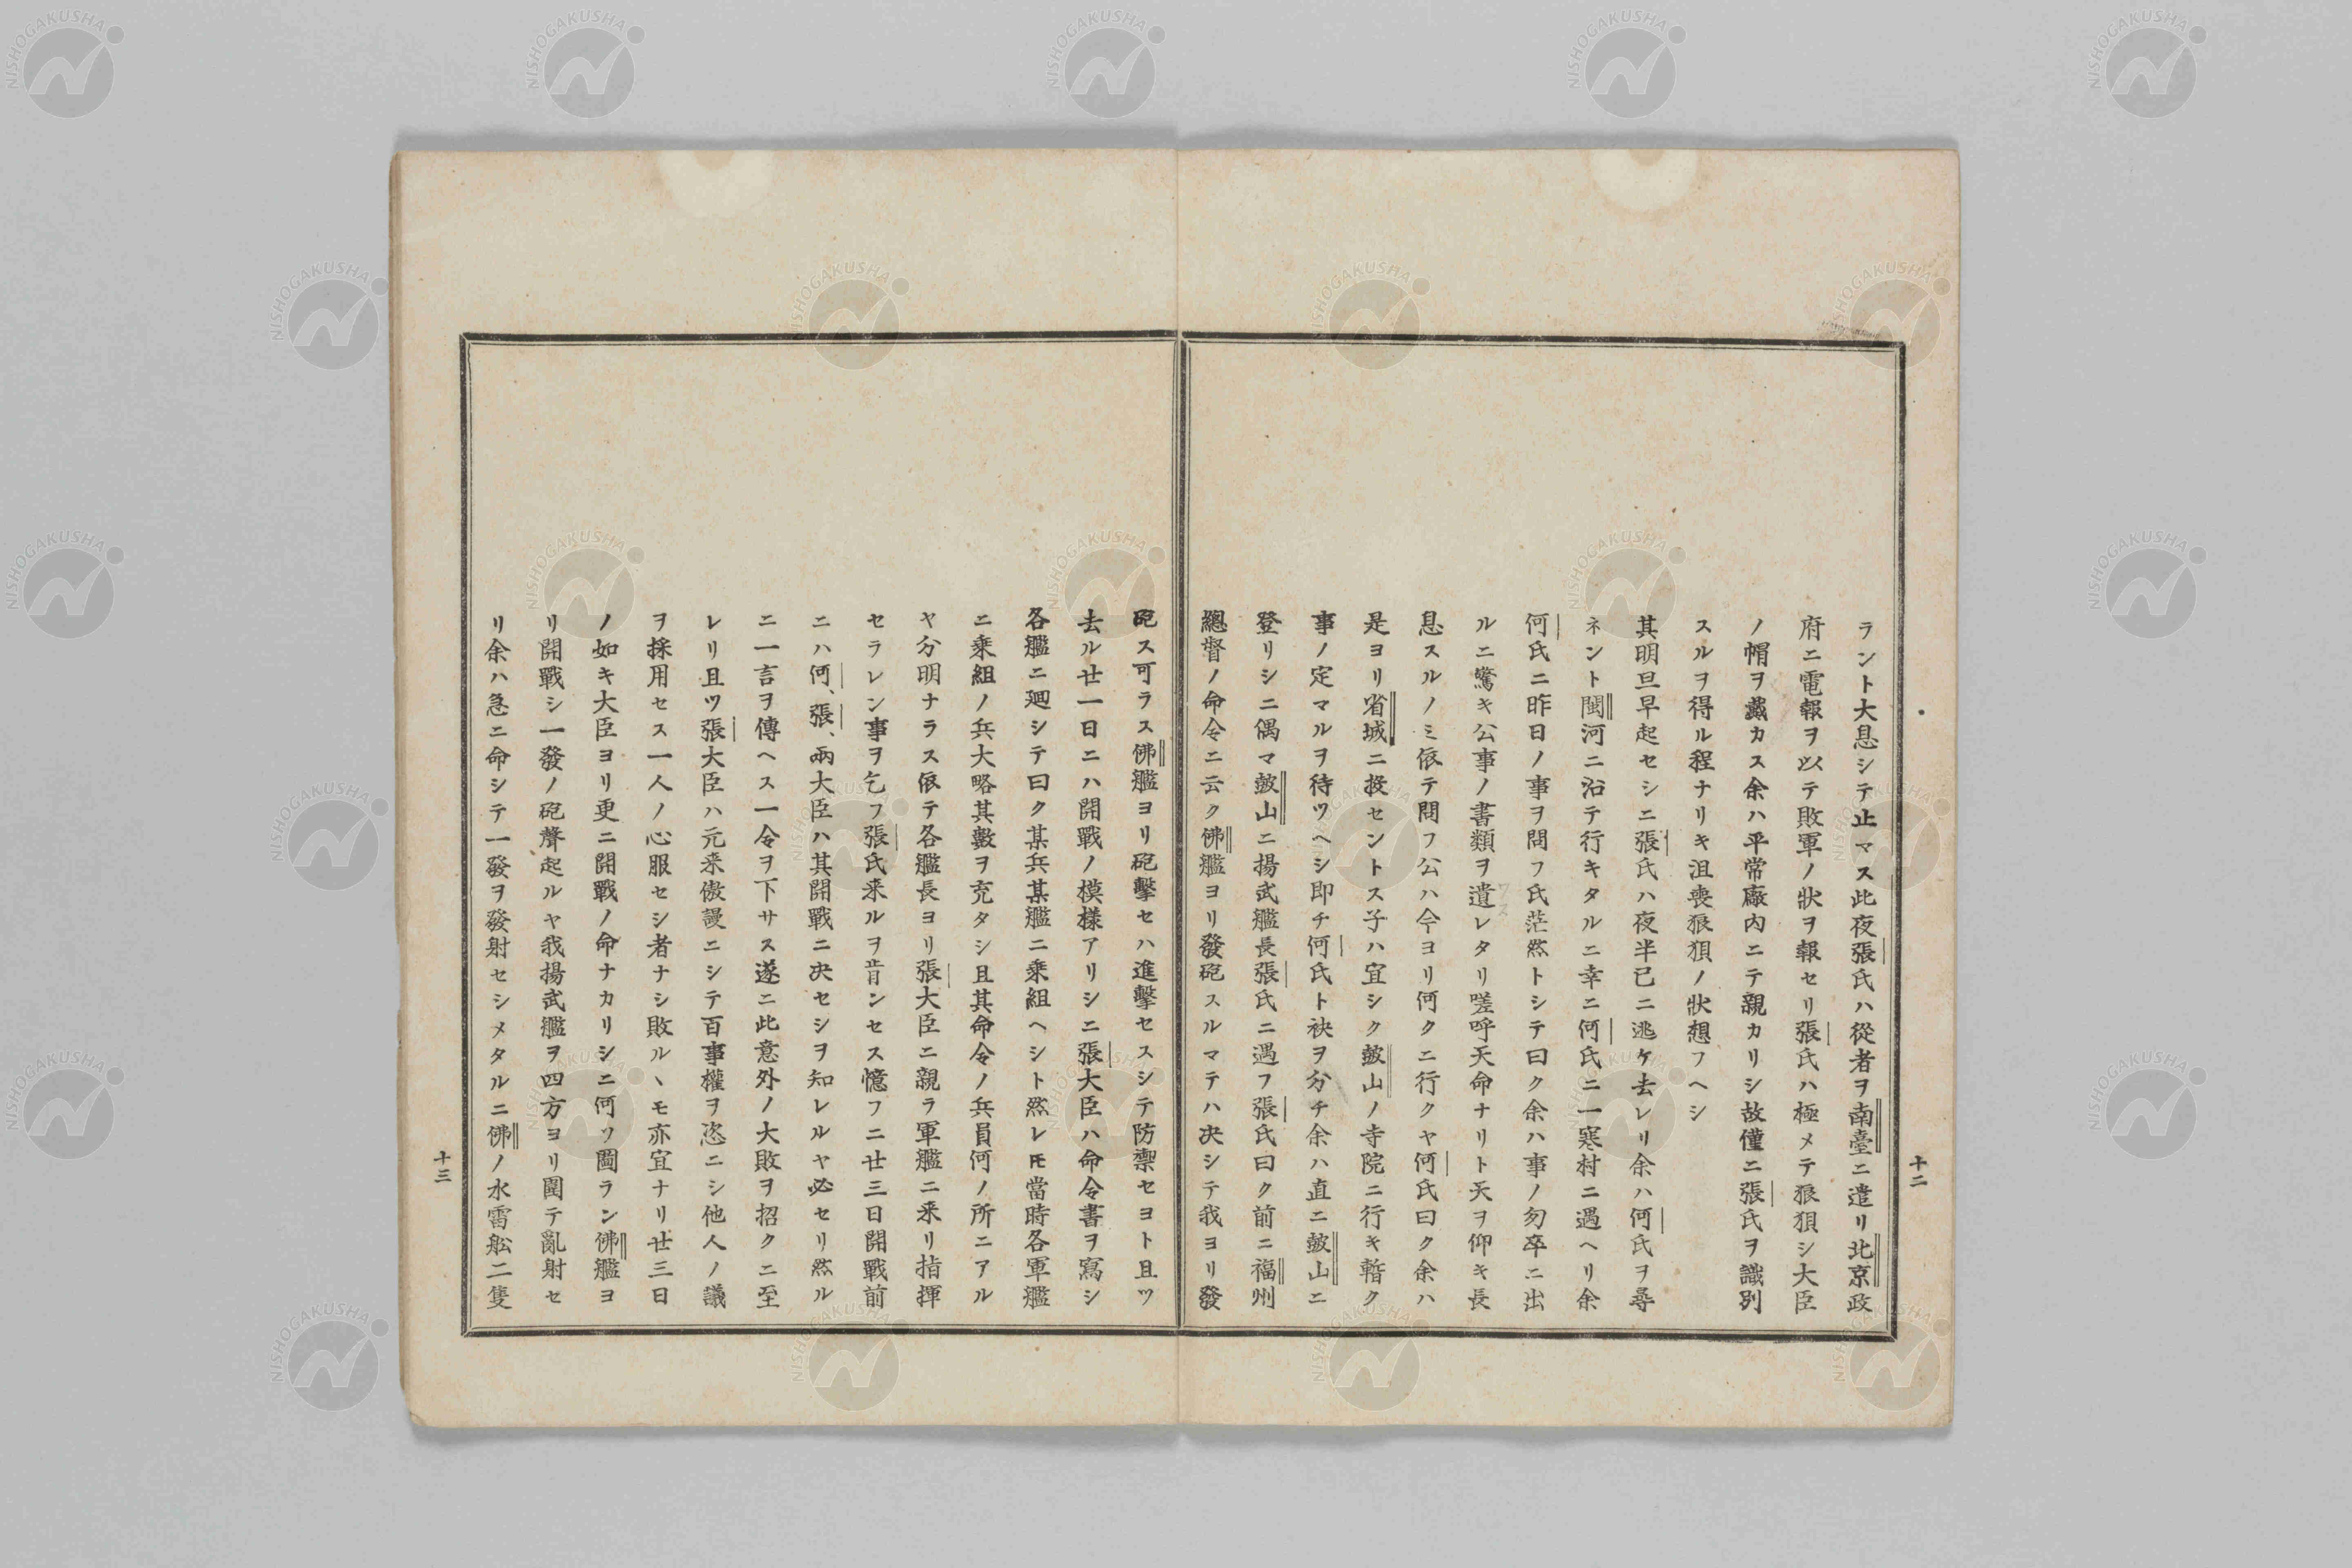 ラント大息シテ止マス此夜張氏ハ從者ヲ南臺ニ遣リ北京政
府ニ電報ヲ以テ敗軍ノ狀ヲ報セリ張氏ハ極メテ狼狽シ大臣
ノ帽ヲ戴カス余ハ平常廠內ニテ親カリシ故僅ニ張氏ヲ識別
スルヲ得ル程ナリキ沮喪狼狽ノ狀想フヘシ
其明旦早起セシニ張氏ハ夜半已ニ逃ケ去レリ余ハ何氏ヲ尋
ネント閩河ニ沿テ行キタルニ幸ニ何氏ニ一寒村ニ遇ヘリ余
何氏ニ昨日ノ事ヲ問フ氏茫然トシテ曰ク余ハ事ノ匆卒ニ出
ルニ驚キ公事ノ書類ヲ遺レタリ嗟呼天命ナリト天ヲ仰キ長
息スルノミ依テ問フ公ハ今ヨリ何クニ行クヤ何氏曰ク余ハ
是ヨリ省城ニ投セントス子ハ宜シク皷山ノ寺院ニ行キ暫ク
事ノ定マルヲ待ツヘシ即チ何氏ト袂ヲ分チ余ハ直ニ皷山ニ
登リシニ偶マ皷山ニ揚武艦長張氏ニ遇フ張氏曰ク前ニ福州
總督ノ命令ニ云ク佛艦ヨリ發砲スルマテハ决シテ我ヨリ發
十二
砲ス可ラス佛艦ヨリ砲擊セハ進擊セスシテ防禦セヨト且ツ
去ル廿一日ニハ開戰ノ模樣アリシニ張大臣ハ命令書ヲ寫シ
各艦ニ廻シテ曰ク某兵某艦ニ乘組ヘシト然レ𪜈當時各軍艦
ニ乘組ノ兵大略其數ヲ充タシ且其命令ノ兵員何ノ所ニアル
ヤ分明ナラス依テ各艦長ヨリ張大臣ニ親ラ軍艦ニ來リ指揮
セラレン事ヲ乞フ張氏来ルヲ肯ンセス憶フニ廿三日開戰前
ニハ何、張、兩大臣ハ其開戰ニ决セシヲ知レルヤ必セリ然ル
ニ一言ヲ傳ヘス一令ヲ下サス遂ニ此意外ノ大敗ヲ招クニ至
レリ且ツ張大臣ハ元来傲謾ニシテ百事權ヲ恣ニシ他人ノ議
ヲ採用セス一人ノ心服セシ者ナシ敗ルヽモ亦宜ナリ廿三日
ノ如キ大臣ヨリ更ニ開戰ノ命ナカリシニ何ソ圖ラン佛艦ヨ
リ開戰シ一發ノ砲聲起ルヤ我揚武艦ヲ四方ヨリ圍テ亂射セ
リ余ハ急ニ命シテ一發ヲ發射セシメタルニ佛ノ水雷舩二隻
十三